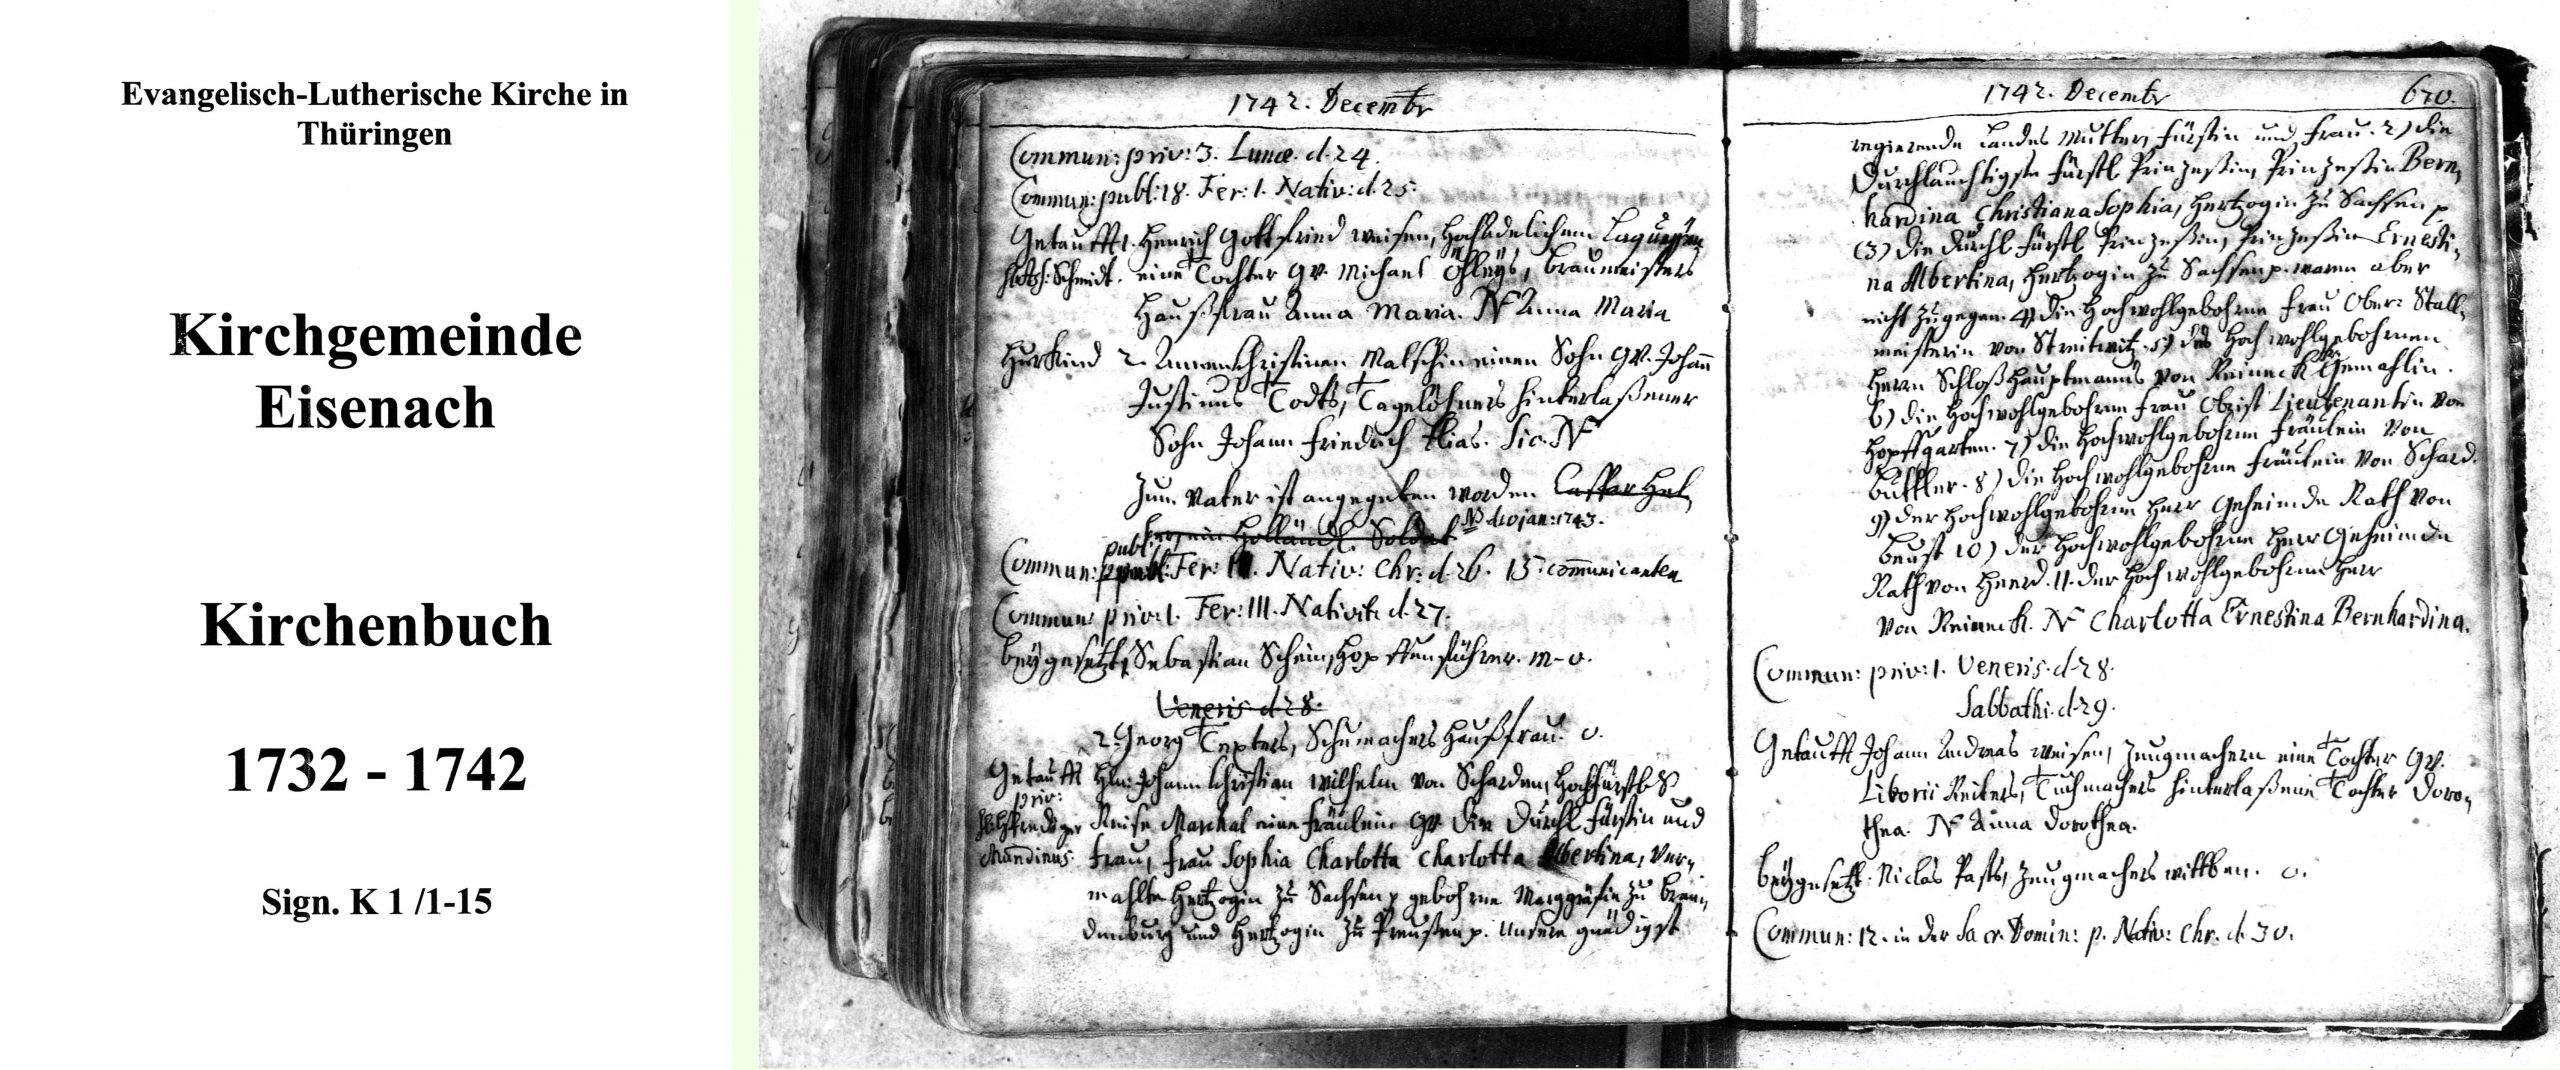 Evangelisch-Lutherische Kirche in
Thüringen
Kirchgemeinde
Eisenach
Kirchenbuch
1732 - 1742
Sign. K 1 /1-15
1742. Decembr
Commun: priv: 3. Lunæ. d. 24.
Commun: publ: 18. Fer: 1. Nativ: d. 25.
Getaufft 1. Henrich Gottfried Weisen, Hochadelichem
Schmidt. eine Tochter Gv. Michael Öhleÿs, Braumeisters
Haußfrau Anna Maria. N Anna Maria
Hurkind 2. Annen Christinen Malschin einen Sohn Gv. Johann
Justinus Todts, Tagelöhners hinterlaßener
Sohn Johann Friedrich Elias. Sic. N
Zum Vater ist angegeben worden Casper Hel,
ein Holländl. Soldat jan: 1743.
publ:
Commun: Fer: II. Nativ: Chr: d. 26. 15. communicanten
Commun: priv: 1. Fer: III. Nativit: d. 27.
Beÿgesetzt 1. Sebastian Schein, Hopffenführer. m-o.
Veneris d. 28.
2. Georg Schumachers Haußfrau. o.
Getaufft Hln: Johann Christian Wilhelm von Scharden, Hochfürstl S
priv:
Reise Marchal eine Fräulein Gv die Durchl Fürstin und
Frau, Frau Sophia Charlotta Charlotta Albertina, Ver,
mahlte Hertzogin zu Sachsen p gebohrne Marggräfin zu Bran,
denburg und Hertzogin zu Preusen p. Unsere gnädigst
1742. Decembr 670.
regierende Landes Mutter, Fürstin und Frau. 2) die
Durchlauchtigste Fürstl Prinzeßin, Prinzeßin Bern,
hardina Christiana Sophia, Hertzogin zu Sachsen p
(3) die Durchl Fürstl Prinzeßin, Prinzeßin Ernesti,
na Albertina, Hertzogin zu Sachsen p. waren aber
nicht zugegen. 4) die Hochwohlgebohrne Frau Ober: Stall,
meisterin von Streitwitz. 5) des Hoch wohlgebohrnen
Herrn Schloßhauptmanns von Reineck Gemahlin.
6) die Hochwohlgebohrne Frau Obrist Lieutenantin von
Hopffgarten. 7) die Hochwohlgebohrne Fräulein von
Buttler. 8) die Hochwohlgebohrne Fräulein von Schard.
9) der Hochwohlgebohrne Herr Geheimde Rath von
Beust 10) der Hochwohlgebohrne Herr Geheimde
Rath von Heerd. 11. der Hochwohlgebohrne Herr
von Reineck. N Charlotta Ernestina Bernhardina.
Commun: priv: 1. Veneris. d. 28.
Sabbathi. d. 29.
Getaufft Johann Andreas Weisen, Zeugmachern eine Tochter Gv.
Liborii Reiters, Tuchmachers hinterlaßene Tochter Doro,
thea. N Anna Dorothea.
Beÿgesetzt. Niclas Zeugmachers wittben. o.
Commun: 12. in der Sacr. Domin: p. Nativ: Chr. d. 30.